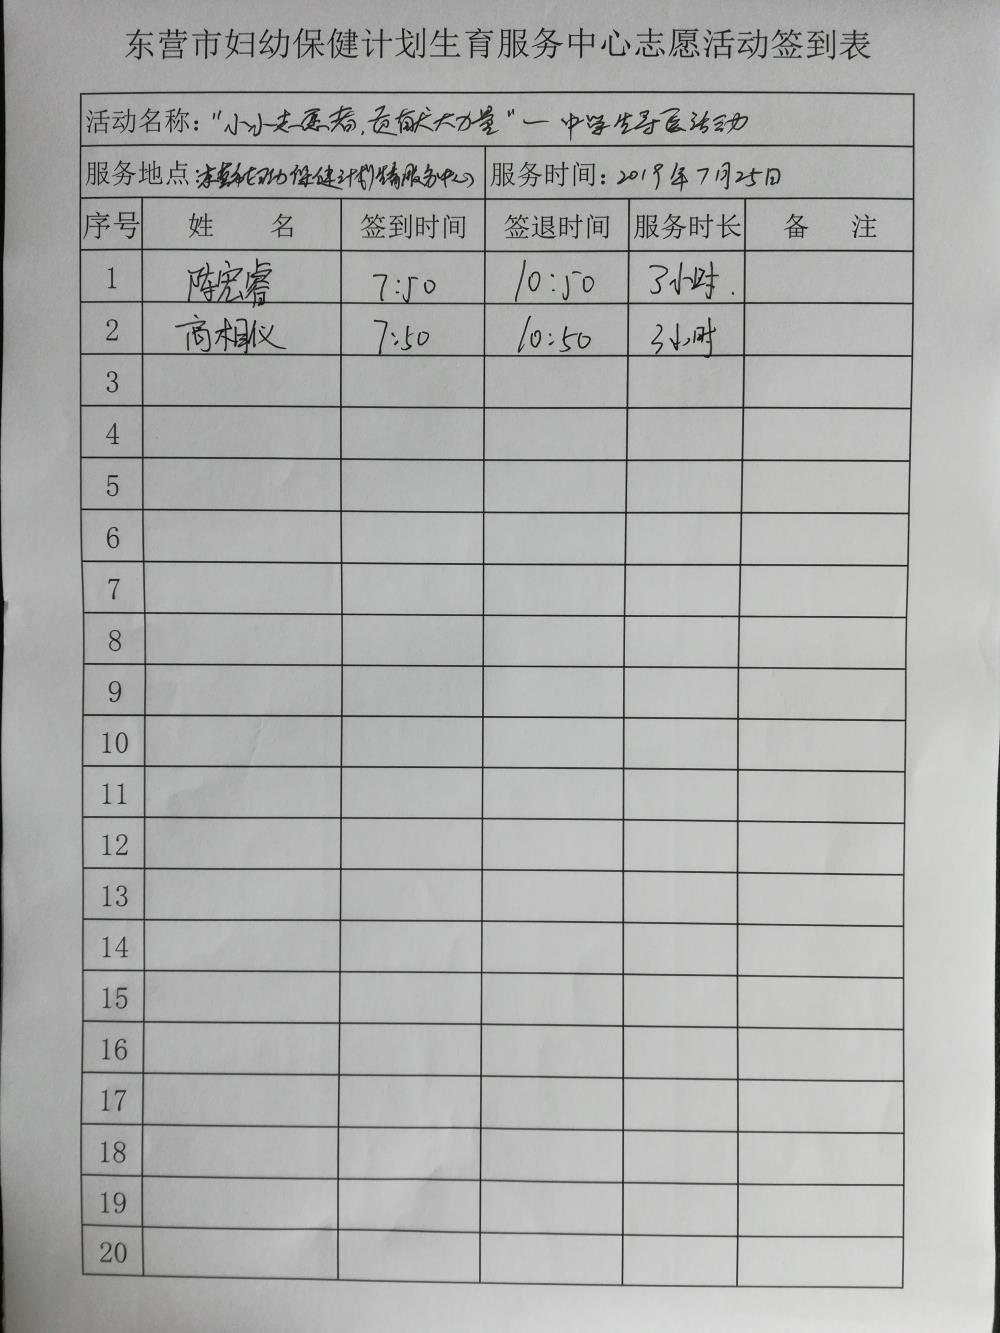 东营市妇幼保健计划生育服务中心志愿活动签到表
活动名称："小小志愿者,贡献大力量"一中学生导医活动
服务地点：东营市妇幼保健计划生育服务中心 服务时间：2019年7月25日
序号 姓 名 签到时间 签退时间 服务时长 备 注
1 陈宏睿 7:50 10:50 3小时.
2 商相仪 7:50 10:50 3小时
3
4
5
6
7
8
9
10
11
12
13
14
15
16
17
18
19
20